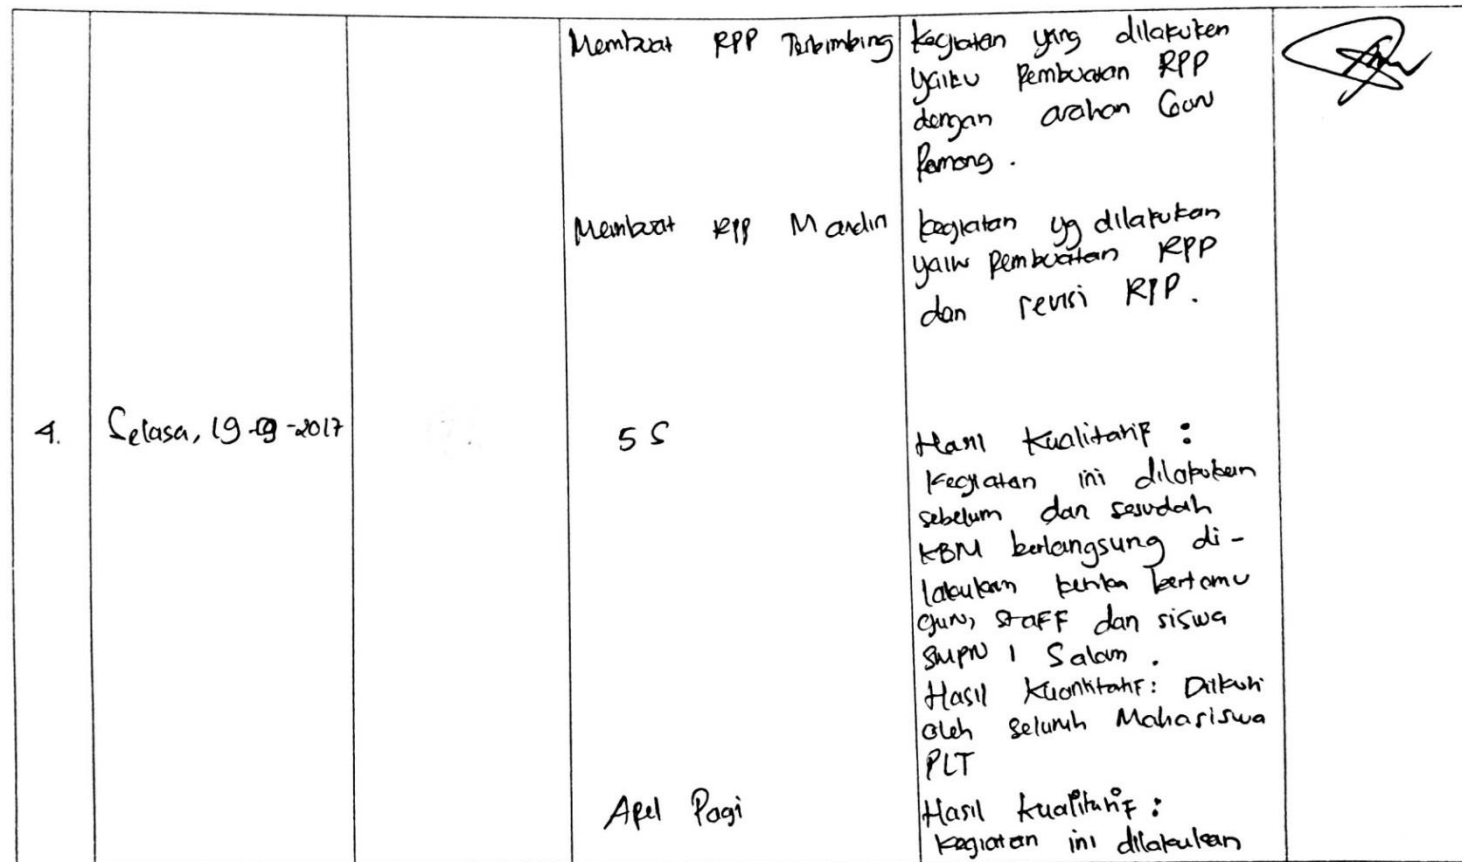 Membuat RPP Terbimbing
Kegiatan yang dilakukan
yaitu Pembuatan RPP
dengan arahan Guru
Pamong.
Membuat RPP Mandiri
kegiatan yg dilakukan
yaitu pembuatan RPP
dan revisi RPP.
4.
Selasa, 19-09-2017
5 S
Hasil Kualitatif :
Kegiatan ini dilakukan
sebelum dan sesudah
KBM berlangsung di-
lakukan ketika bertemu
guru, staff dan siswa
SMPN 1 Salam.
Hasil Kuantitatif: Diikuti
oleh seluruh Mahasiswa
PLT
Apel Pagi
Hasil Kualitatif :
kegiatan ini dilakukan